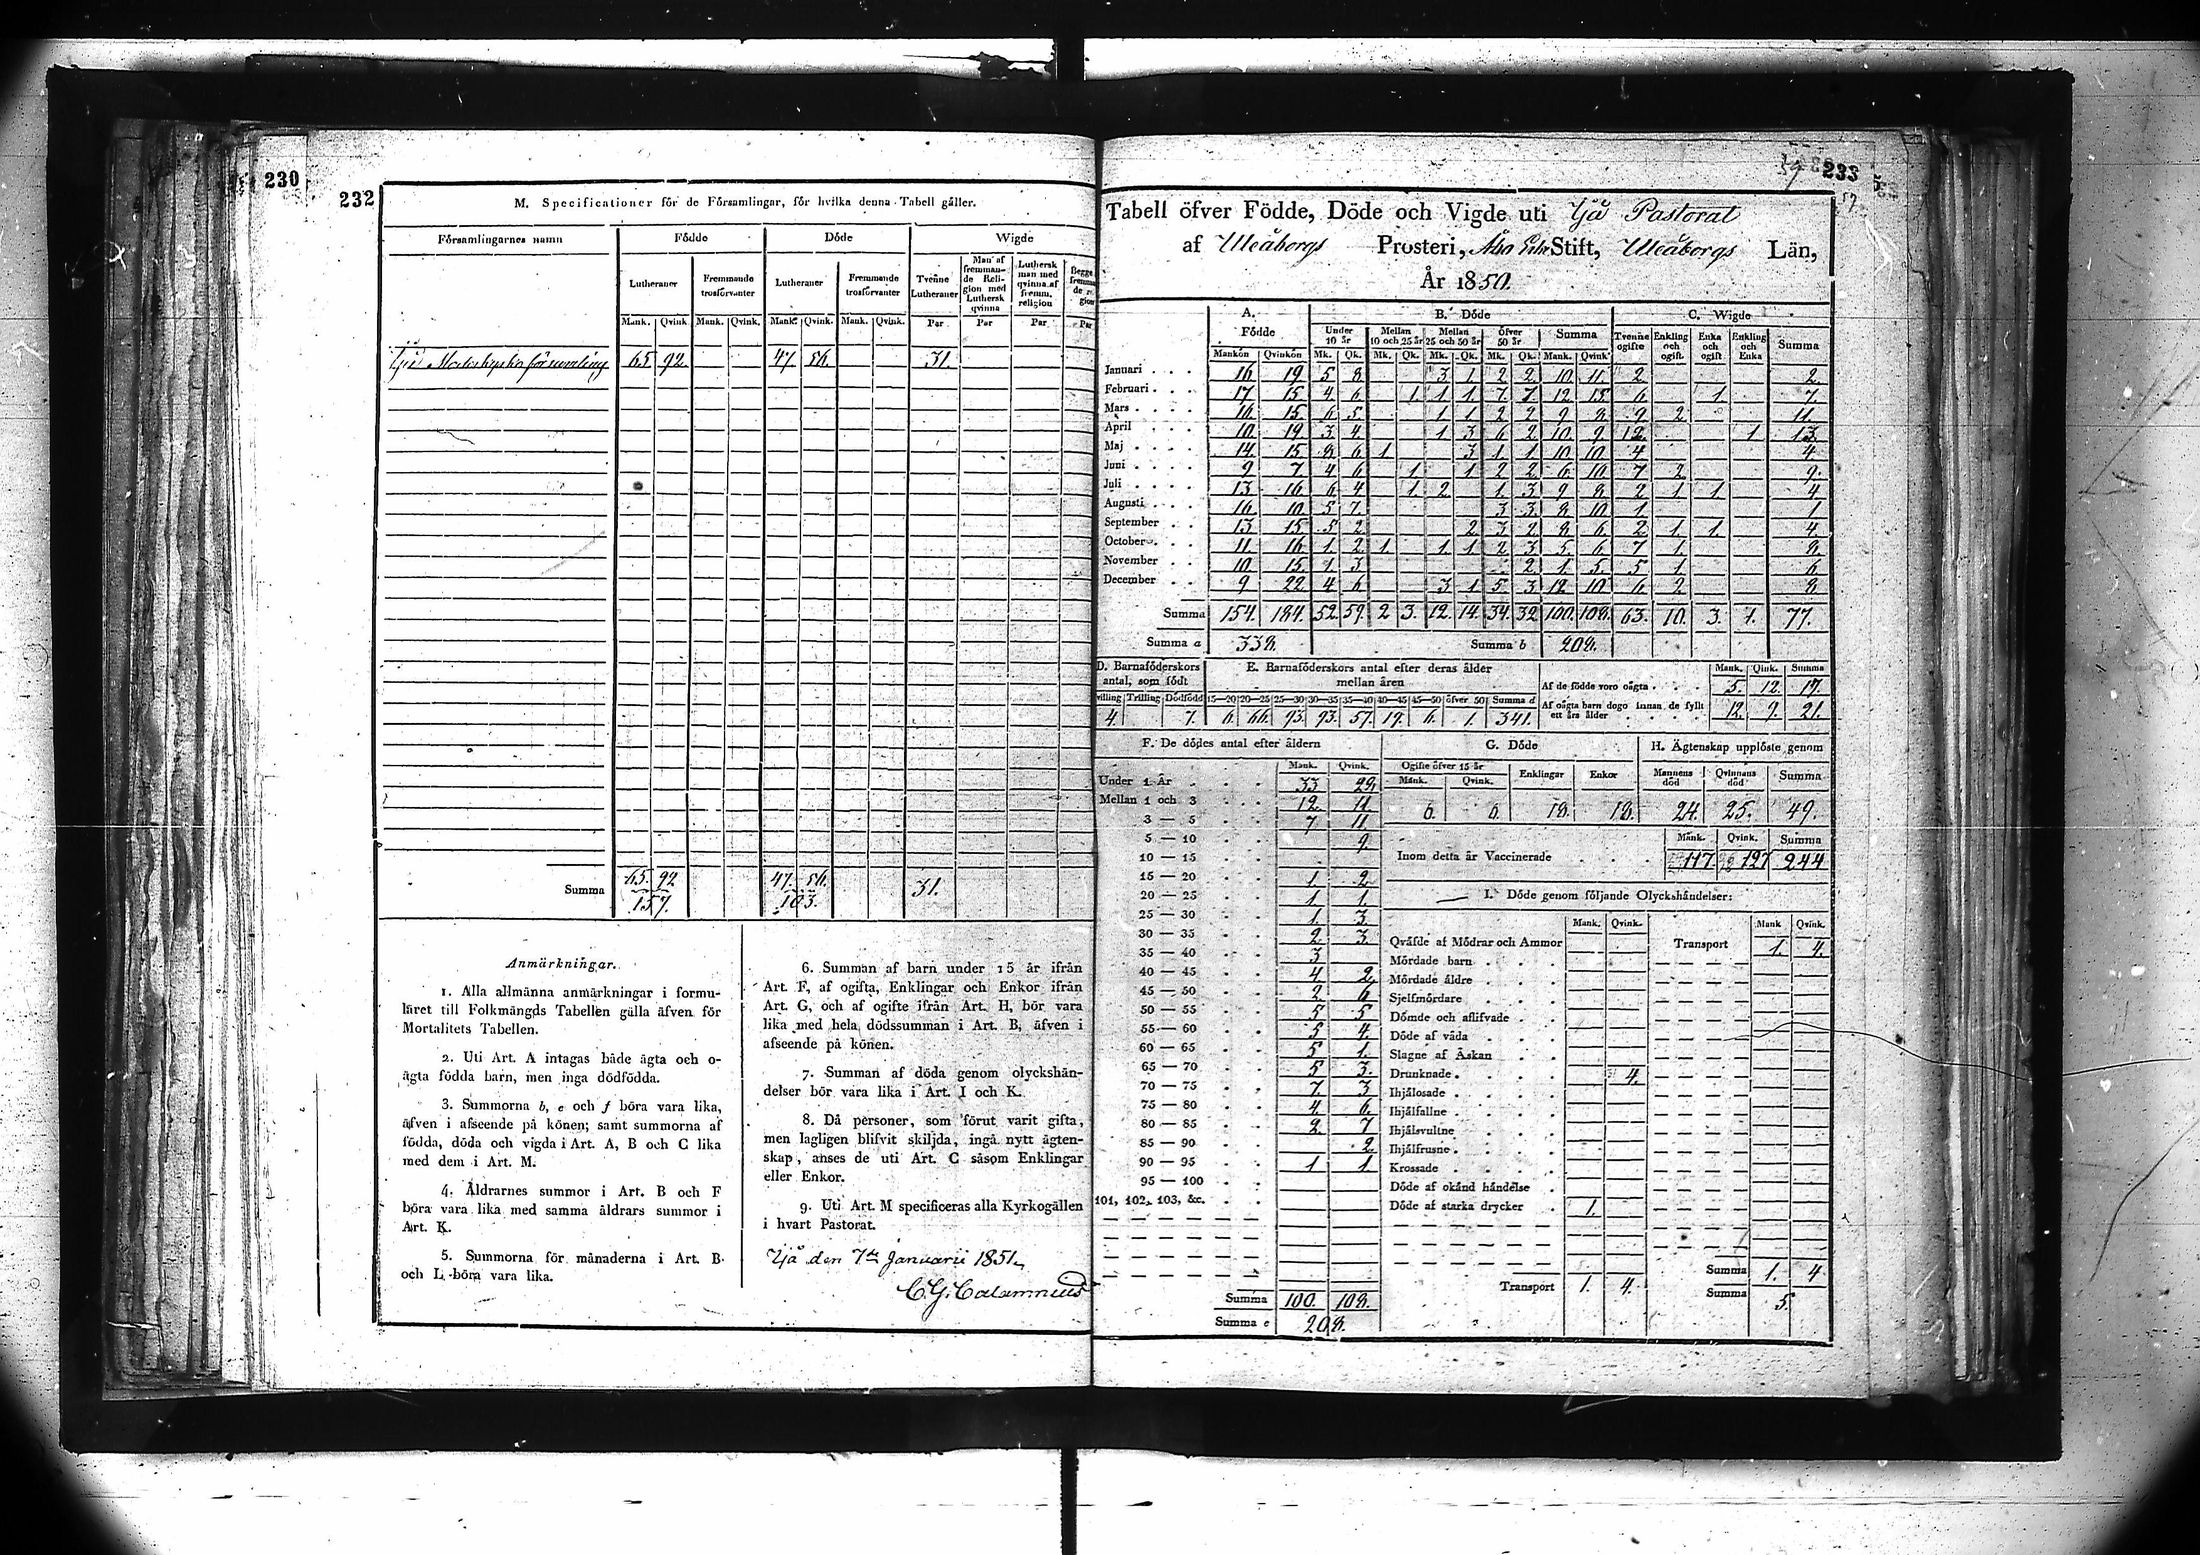 230
232
M. Specificationer för de Församlingar, för hvilka denna Tabell gäller.
Församlingarnes namn Födde Döde Wigde
Lutheraner Fremmande trosförvanter Lutheraner Fremmande trosförvanter Tvenne Lutheraner Man af fremmande Religion med Luthersk qvinna Luthersk man med qvinna af fremm. religion Begge fremmande religion
Mank. Qvink. Mank. Qvink. Mank. Qvink. Mank. Qvink. Par Par Par Par
Ijå Moderkyrko församling 65. 92. 47. 56. 31.
Summa 65. 92 47. 56. 31.
157. 103.
Anmärkningar.
1. Alla allmänna anmärkningar i formu-
läret till Folkmängds Tabellen gälla äfven för
Mortalitets Tabellen.
2. Uti Art. A intagas både ägta och o-
ägta födda barn, men inga dödfödda.
3. Summorna b, e och f böra vara lika,
äfven i afseende på könen; samt summorna af
födda, döda och vigda i Art. A, B och C lika
med dem i Art. M.
4. Åldrarnes summor i Art. B och F
böra vara lika med samma åldrars summor i
Art. K.
5. Summorna för månaderna i Art. B
och L böra vara lika.
6. Summan af barn under 15 år ifrån
Art. F, af ogifta, Enklingar och Enkor ifrån
Art. G, och af ogifte ifrån Art. H, bör vara
lika med hela dödssumman i Art. B, äfven i
afseende på könen.
7. Summan af döda genom olyckshän-
delser bör vara lika i Art. I och K.
8. Då personer, som förut varit gifta,
men lagligen blifvit skiljda, ingå nytt ägten-
skap, anses de uti Art. C såsom Enklingar
eller Enkor.
9. Uti Art. M specificeras alla Kyrkogällen
i hvart Pastorat.
Ijå den 7de Januarii 1851.
C. G. Calamnius
233
Tabell öfver Födde, Döde och Vigde uti Ijå Pastorat
af Uleåborgs Prosteri, Åbo Erke Stift, Uleåborgs Län,
År 1850.
A. Födde B. Döde C. Wigde
Under 10 år Mellan 10 och 25 år Mellan 25 och 50 år Öfver 50 år Summa Tvenne ogifte Enkling och ogift Enka och ogift Enkling och Enka Summa
Mankön Qvinkön Mk. Qk. Mk. Qk. Mk. Qk. Mk. Qk. Mank. Qvink.
Januari 16 19 5 8 3 1 2 2 10 11 2 2
Februari 17 15 4 6 1 1 1 7 7 12 15 6 1 7
Mars 16 15 6 5 1 1 2 2 9 8 9 2 11
April 10 19 3 4 1 3 6 2 10 9 12 1 13
Maj 14 15 8 6 1 3 1 1 10 10 4 4
Juni 9 7 4 6 1 1 2 2 6 10 7 2 9
Juli 13 16 6 4 1 2 1 3 9 8 2 1 1 4
Augusti 16 10 5 7 3 3 8 10 1 1
September 13 15 5 2 2 3 2 8 6 2 1 1 4
October 11 16 1 2 1 1 1 2 3 5 6 7 1 8
November 10 15 1 3 2 1 5 5 1 6
December 9 22 4 6 3 1 5 3 12 10 6 2 8
Summa 154. 184. 52. 59. 2 3. 12. 14. 34. 32 100. 108. 63. 10. 3. 1. 77.
Summa a 338. Summa b 208.
D. Barnaföderskors antal, som födt
villing Trilling Dödfödd
4 7.
E. Barnaföderskors antal efter deras ålder mellan åren
15—20 20—25 25—30 30—35 35—40 40—45 45—50 öfver 50 Summa d
6. 66. 93. 93. 57. 19. 6. 1. 341.
Mank. Qink. Summa
Af de födde voro oägta 5. 12. 17.
Af oägta barn dogo innan de fyllt ett års ålder 12. 9. 21.
F. De dödes antal efter åldern
Mank. Qvink.
Under 1 År 33 29
Mellan 1 och 3 12. 11
3 — 5 7 11
5 — 10 9.
10 — 15
15 — 20 1. 2
20 — 25 1 1.
25 — 30 1. 3.
30 — 35 2. 3.
35 — 40 3
40 — 45 4 2
45 — 50 2. 6
50 — 55 5 5
55 — 60 5 4.
60 — 65 5 1.
65 — 70 5 3.
70 — 75 7. 3
75 — 80 4. 6.
80 — 85 2. 7
85 — 90 2.
90 — 95 1 1
95 — 100
101, 102, 103, &c.
Summa 100. 108.
Summa e 208.
G. Döde
Ogifte öfver 15 år Enklingar Enkor
Mank. Qvink.
6. 6. 18. 18.
H. Ägtenskap upplöste genom
Mannens död Qvinnans död Summa
24. 25. 49.
Mank. Qvink. Summa
Inom detta år Vaccinerade 117. 127 244
I. Döde genom följande Olyckshändelser:
Mank. Qvink. Mank Qvink.
Qväfde af Mödrar och Ammor Transport 1. 4.
Mördade barn
Mördade äldre
Sjelfmördare
Dömde och aflifvade
Döde af våda
Slagne af Åskan
Drunknade 4.
Ihjälosade
Ihjälfallne
Ihjälsvultne
Ihjälfrusne
Krossade
Döde af okänd händelse
Döde af starka drycker 1.
Summa 1. 4
Transport 1. 4. Summa 5.